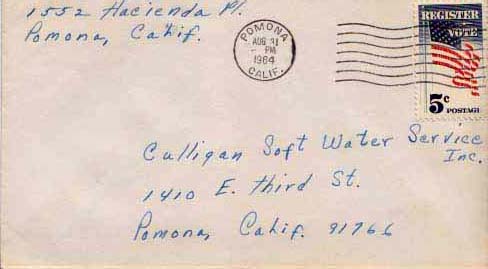 1552 Hacienda Pl.
Pomona, Calif.
POMONA
AUG 31
PM
1964
CALIF.
REGISTER
VOTE
5c POSTAGE
Culligan Soft Water Service
Inc.
1410 E. Third St.
Pomona, Calif. 91766